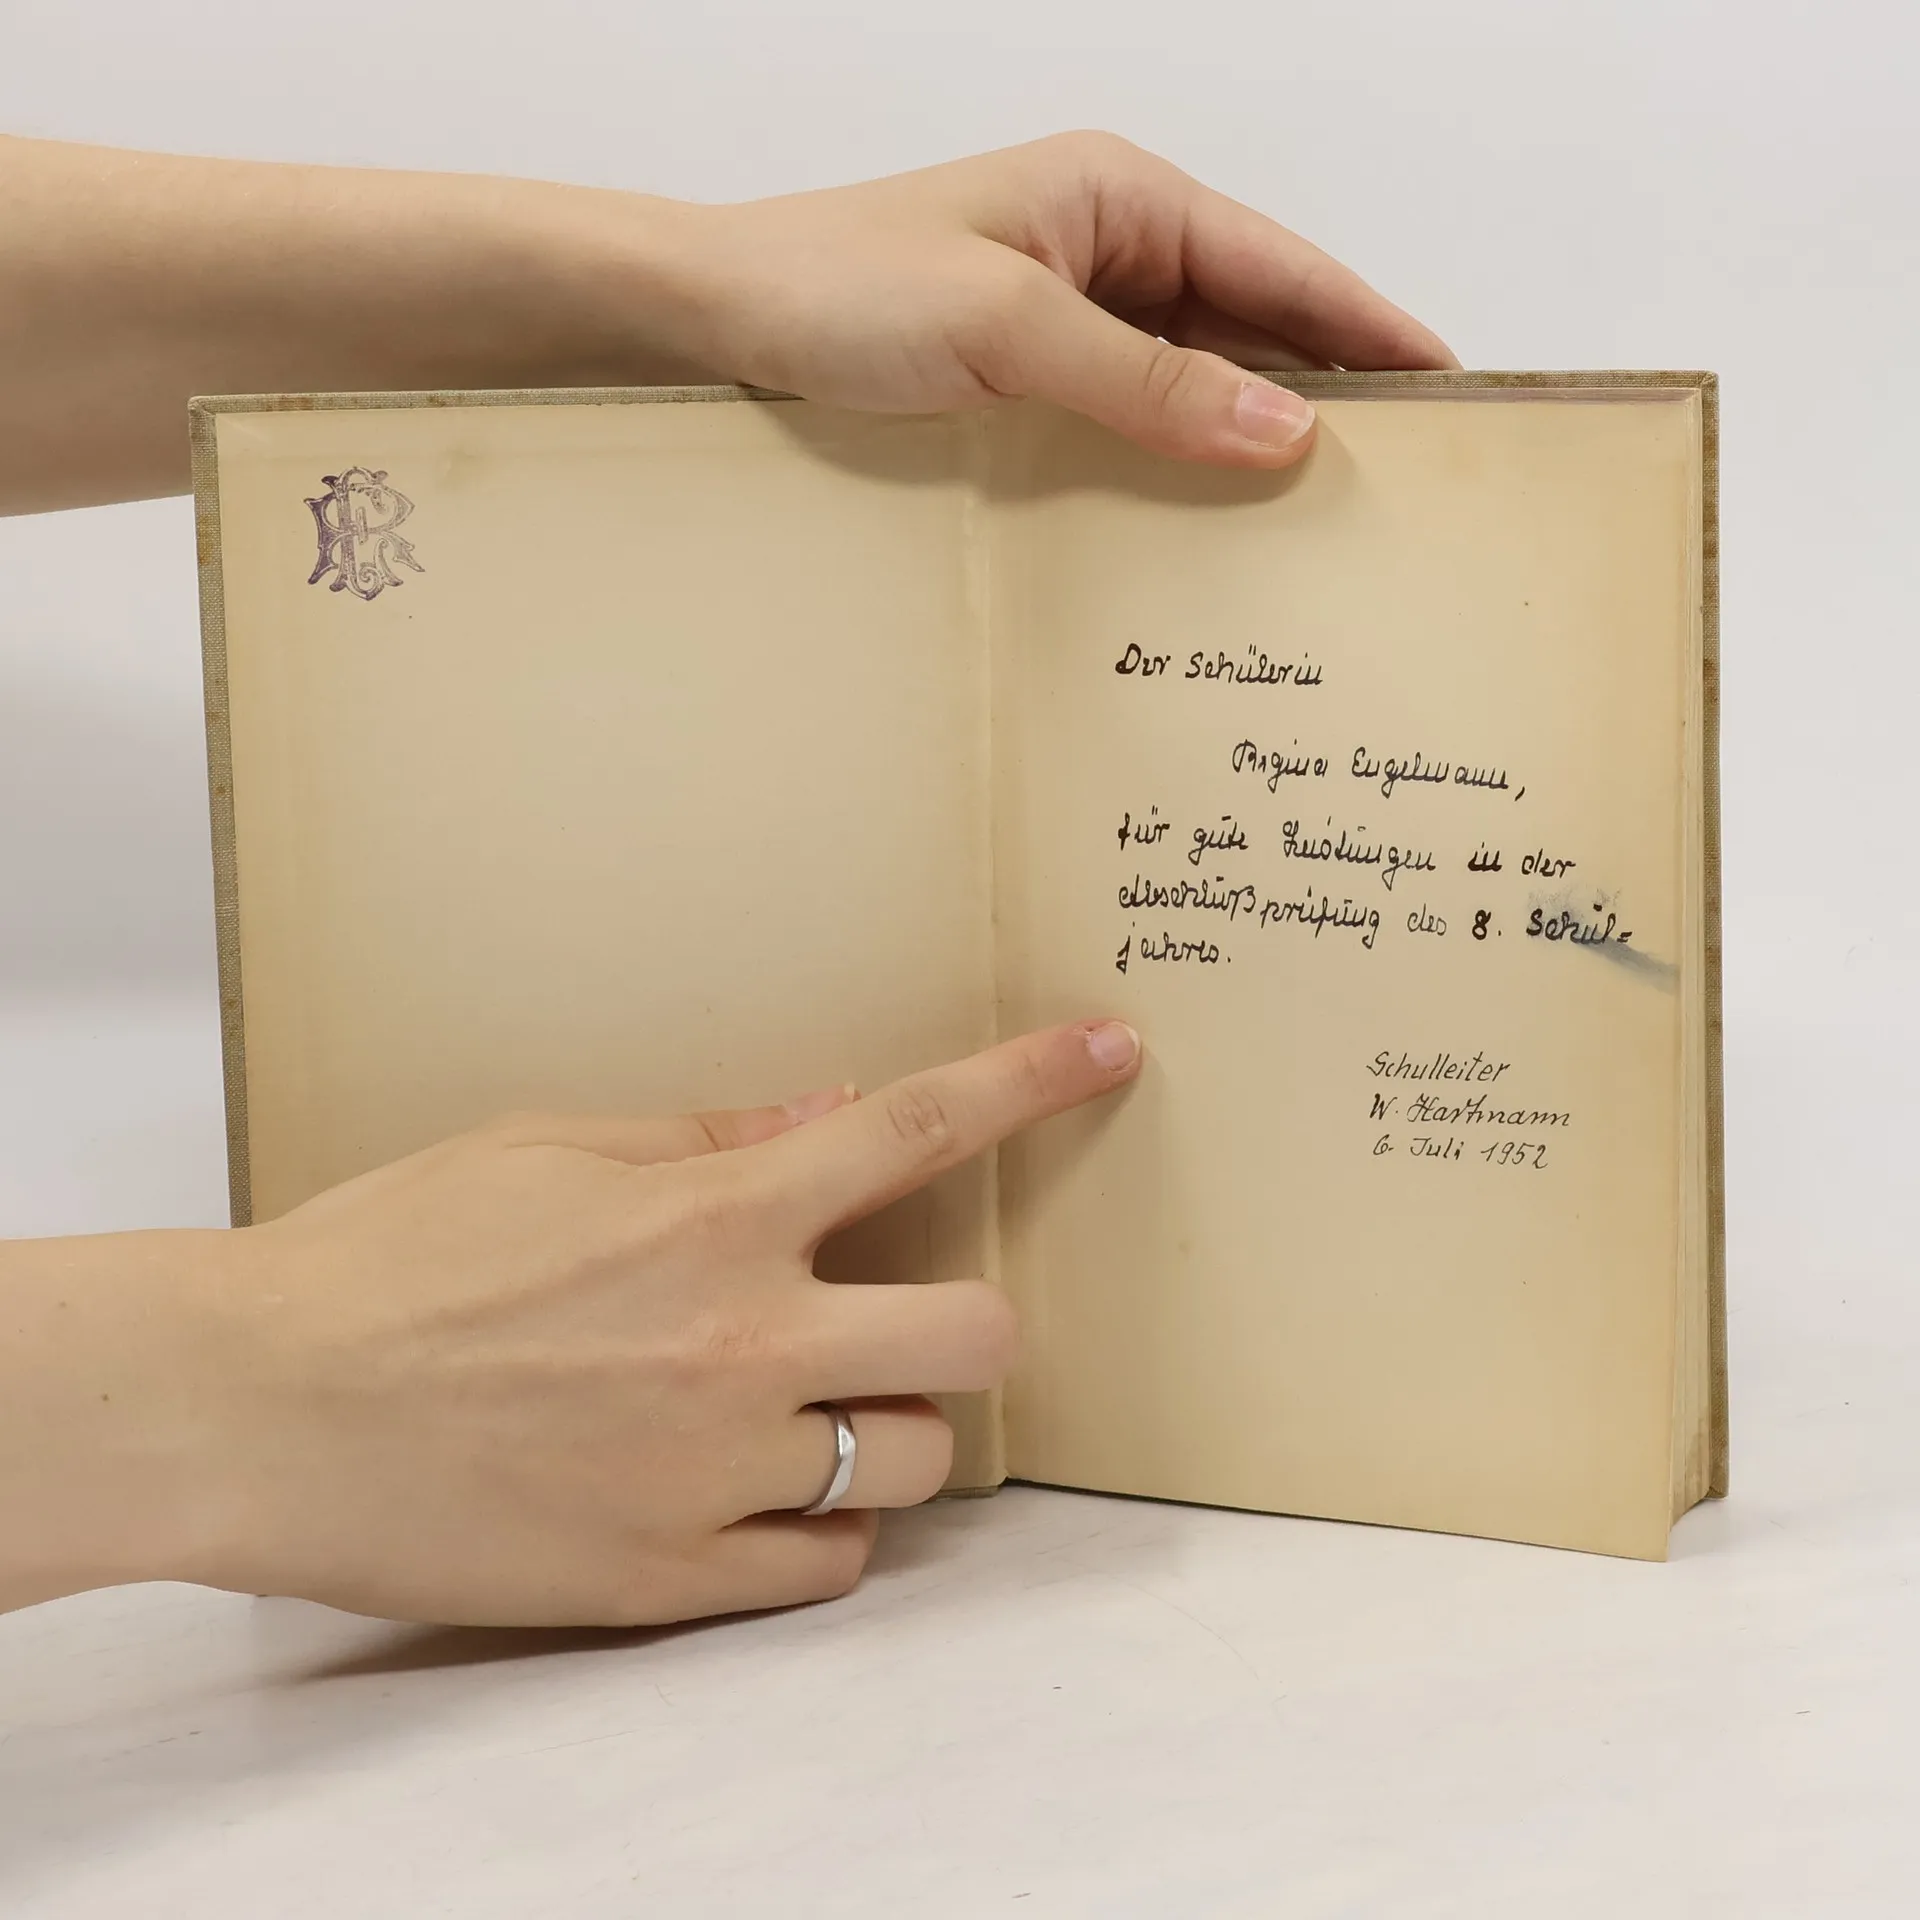 Der Schülerin
Regina Engelmann,
für gute Leistungen in der
Abschlußprüfung des 8. Schul=
jahres.
Schulleiter
W. Hartmann
6. Juli 1952